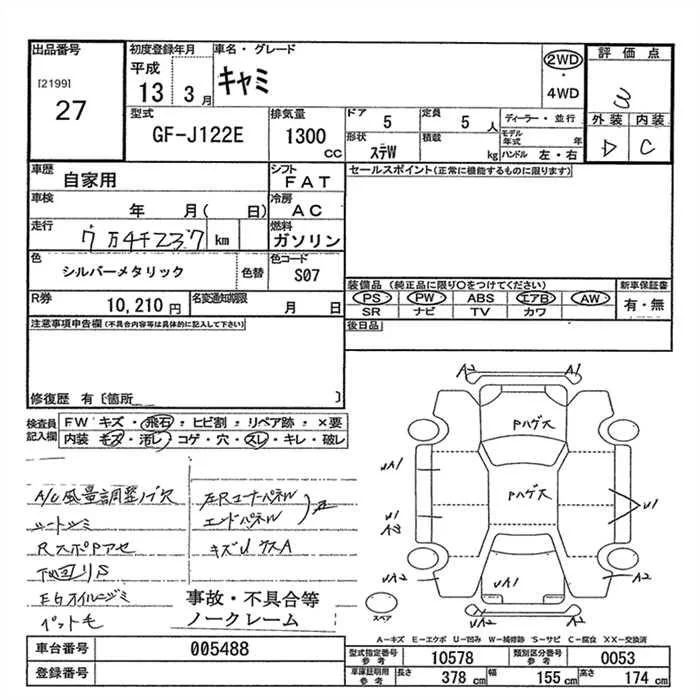 出品番号
[2199]
27
初度登録年月
平成
13 3月
車名・グレード
キャミ
2WD
・
4WD
評価点
3
外装 内装
D C
型式
GF-J122E
排気量
1300 cc
ドア 5
定員 5 人
ディーラー・並行
形状 ステW
積載 kg
モデル年式 年
ハンドル 左・右
車歴 自家用
シフト FAT
セールスポイント(正常に機能するものに限ります)
車検 年 月( 日)
冷房 AC
走行 7万4千237 km
燃料 ガソリン
色 シルバーメタリック 色替
色コード S07
装備品 (純正品に限り○をつけてください) 新車保証書
PS PW ABS エアB AW 有・無
SR ナビ TV カワ
R券 10,210円
名変通知期限 月 日
後日品
注意事項申告欄(不具合内容等は具体的に記入して下さい)
修復歴 有〔箇所 〕
検査員記入欄
FW キズ・飛石・ヒビ割・リペア跡・×要
内装・キズ・汚レ・コゲ・穴・スレ・キレ・破レ
A/C風量調整ツマミ欠
左Rコーナーパネル
エンドパネル
シートシミ
RスポPアセ
キズU ウスA
下回りS
EGオイルニジミ
ペット毛
事故・不具合等
ノークレーム
A2 A1
Pハゲ大
Pハゲ大
UA1
U1
UA2
UA1
U1
A2
A2 A1
スペア
A－キズ E－エクボ U－凹み W－補修跡 S－サビ C－腐食 XX－交換済
車台番号 005488
登録番号
型式指定番号 参考 10578
類別区分番号 参考 0053
車庫証明用 参考
長さ 378 cm
幅 155 cm
高さ 174 cm